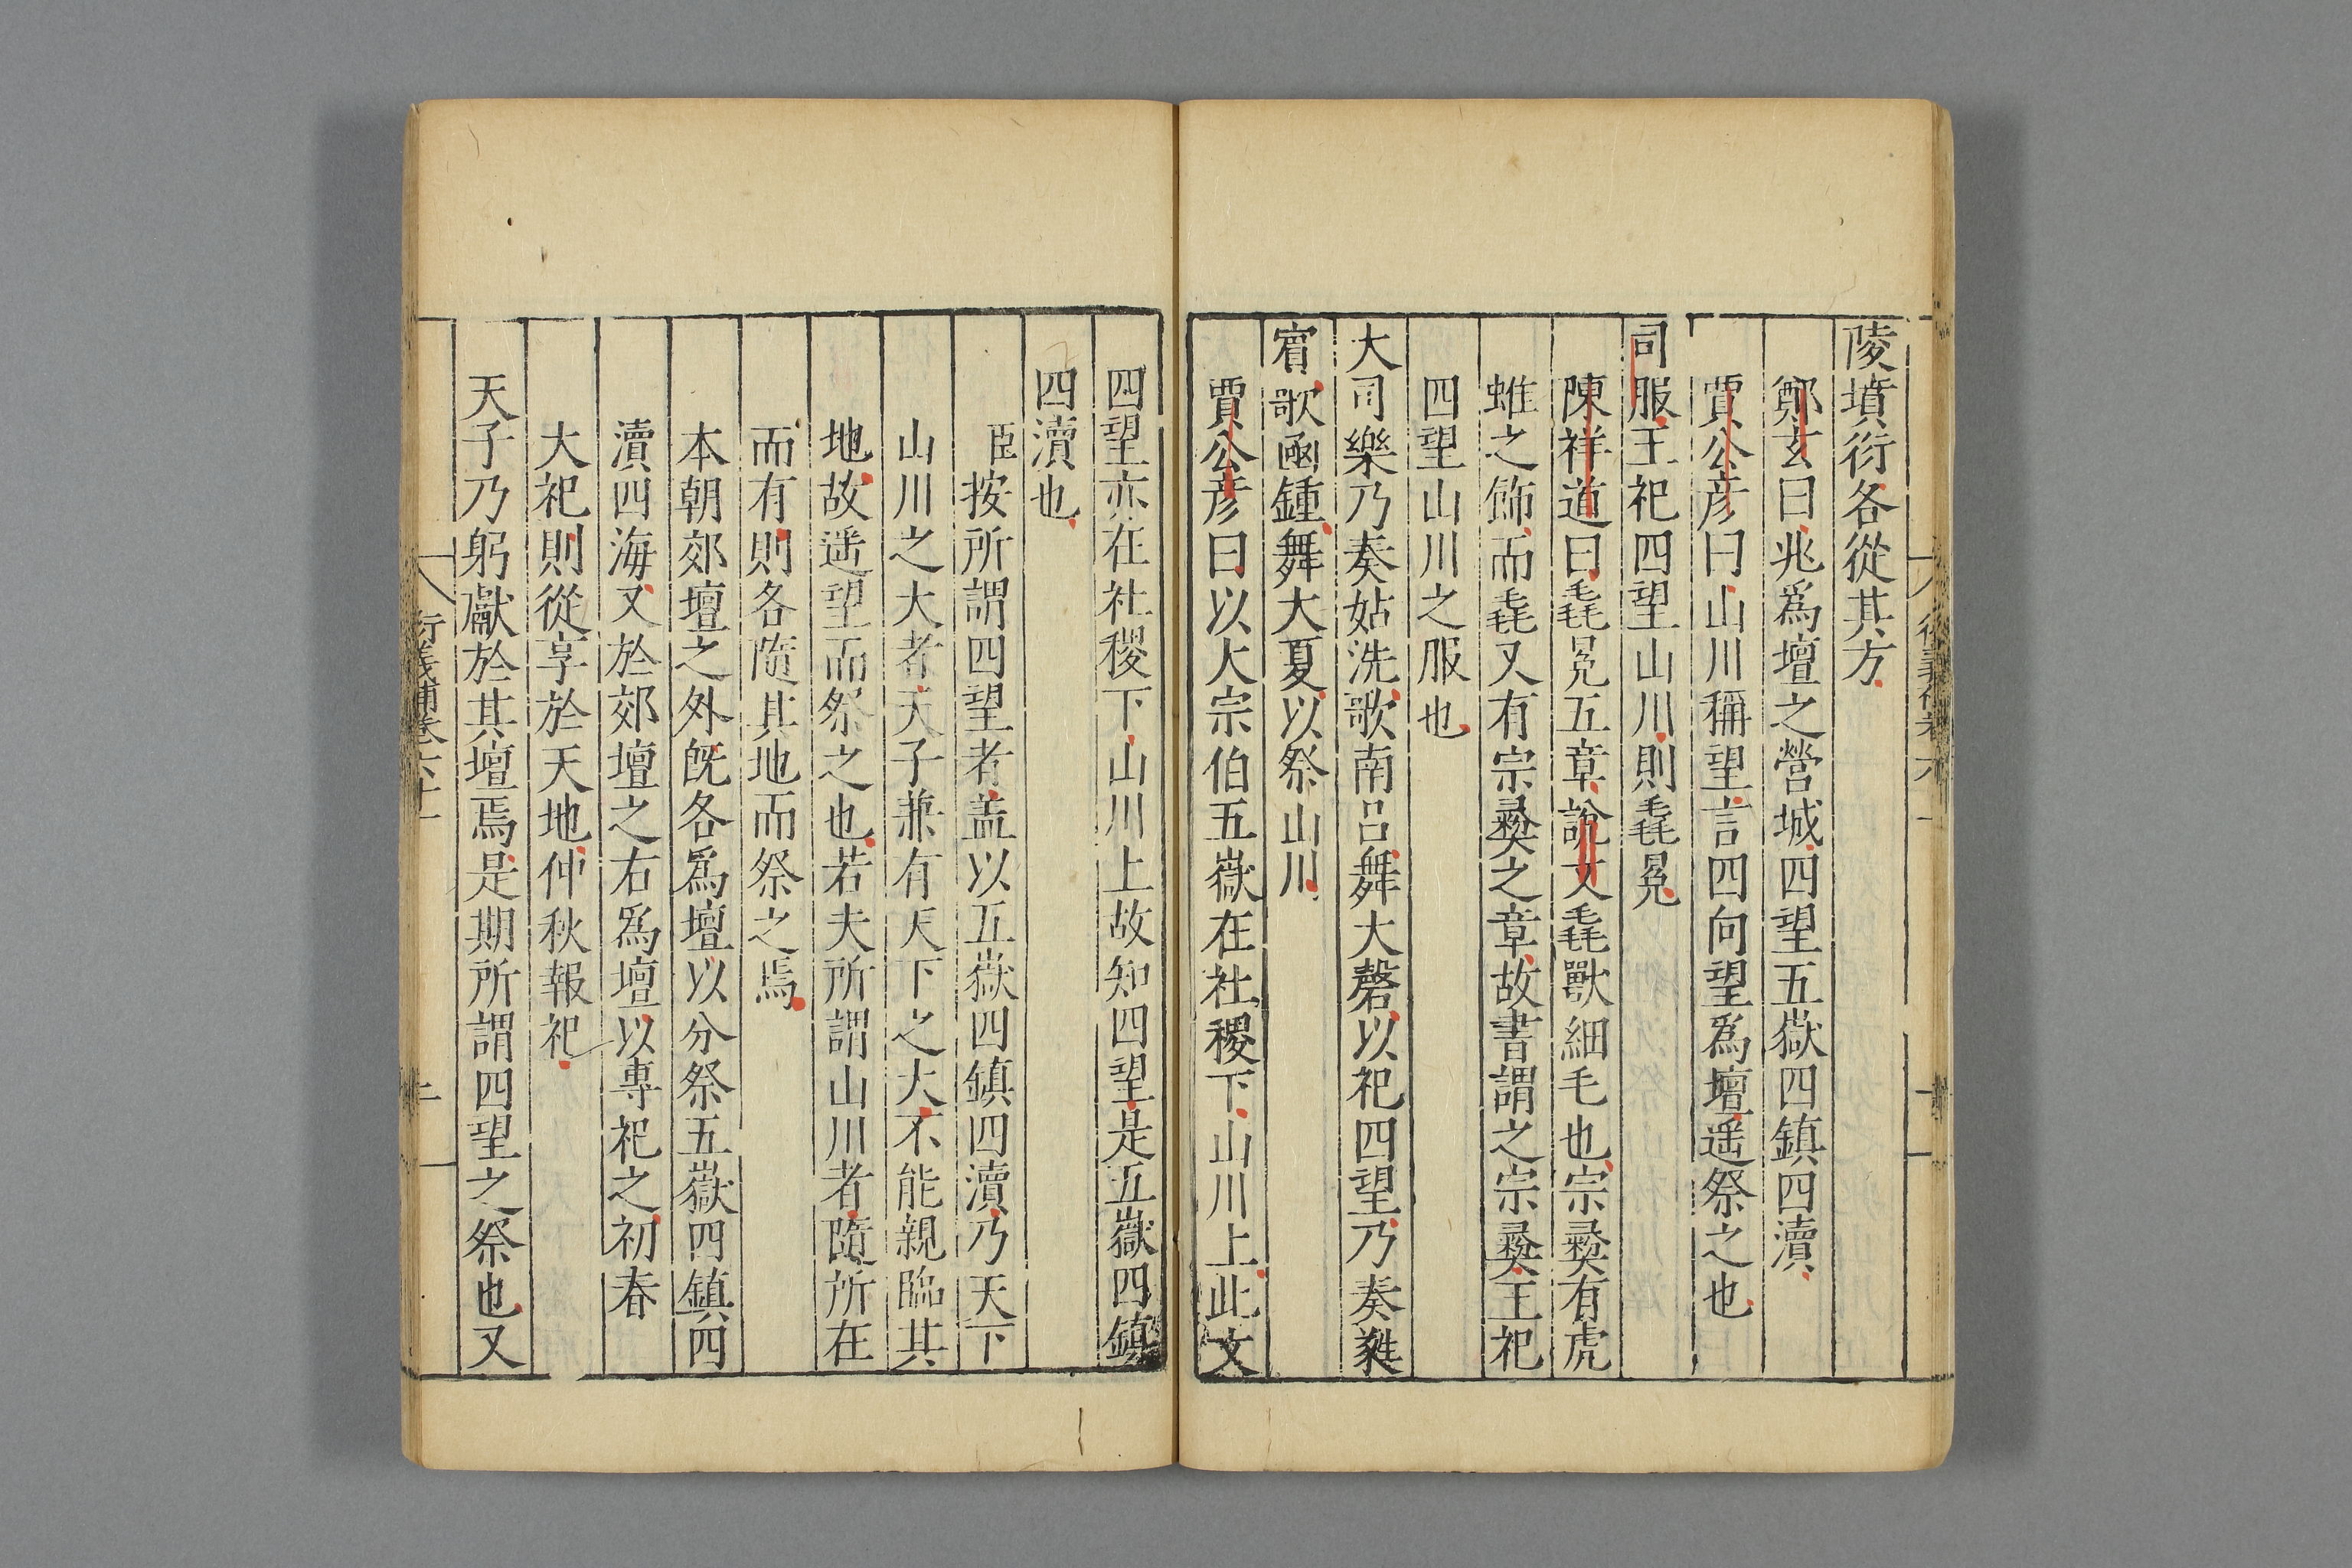 陵墳衍各從其方
鄭玄曰兆爲壇之營域四望五嶽四鎮四瀆
賈公彦曰山川稱望言四向望爲壇遥祭之也
司服王祀四望山川則毳冕
陳祥道曰毳冕五章說文毳獸細毛也宗彝有虎
蜼之飾而毳又有宗彝之章故書謂之宗彝王祀
四望山川之服也
大司樂乃奏姑洗歌南吕舞大磬以祀四望乃奏蕤
賓歌函鍾舞大夏以祭山川
賈公彦曰以大宗伯五嶽在社稷下山川上此文
四望亦在社稷下山川上故知四望是五嶽四鎮
四瀆也
臣按所謂四望者盖以五嶽四鎮四瀆乃天下
山川之大者天子兼有天下之大不能親臨其
地故遥望而祭之也若夫所謂山川者隨所在
而有則各隨其地而祭之焉
本朝郊壇之外既各爲壇以分祭五嶽四鎮四
瀆四海又於郊壇之右爲壇以專祀之初春
大祀則從享於天地仲秋報祀
天子乃躬獻於其壇焉是期所謂四望之祭也又
衍義補卷六十一